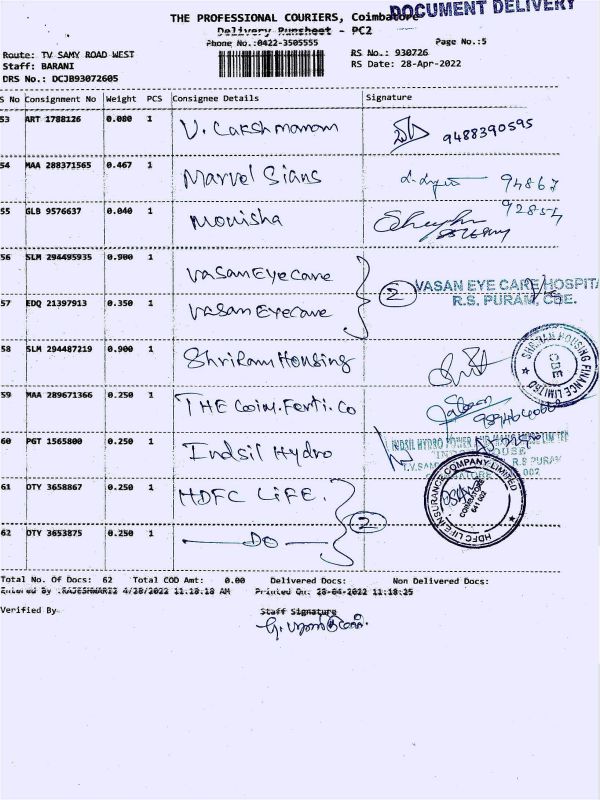 DOCUMENT DELIVERY
THE PROFESSIONAL COURIERS, Coimbatore
Delivery Runsheet - PC2
Phone No.:0422-3505555
Page No.:5
Route: TV SAMY ROAD WEST
RS No.: 930726
Staff: BARANI
RS Date: 28-Apr-2022
DRS No.: DCJB93072605
S No Consignment No Weight PCS Consignee Details Signature
53 ART 1788126 0.080 1 V. Lakshmanam 9488390595
54 MAA 288371565 0.467 1 Marvel Sians 94867
92854
55 GLB 9576637 0.040 1 Monisha
56 SLM 294495935 0.900 1 Vasan Eye Care
2 VASAN EYE CARE HOSPITA
R.S. PURAM, CBE.
57 EDQ 21397913 0.350 1 Vasan Eye care
58 SLM 294487219 0.900 1 Shriram Housing
SHRIRAM HOUSING FINANCE LIMITED
CBE
59 MAA 289671366 0.250 1 THE Coim. Ferti. Co
60 PGT 1565800 0.250 1 Indsil Hydro
INDSIL HYDRO POWER AND LIMITED
R.S PURAM
61 OTY 3658867 0.250 1 HDFC LIFE.
HDFC LIFE INSURANCE COMPANY LIMITED
COIMBATORE
641 002
62 OTY 3653875 0.250 1 DO 2
Total No. Of Docs: 62 Total COD Amt: 0.00 Delivered Docs: Non Delivered Docs:
Entered By :RAJESHWARI2 4/28/2022 11:18:18 AM Printed On: 28-04-2022 11:18:25
Verified By
Staff Signature